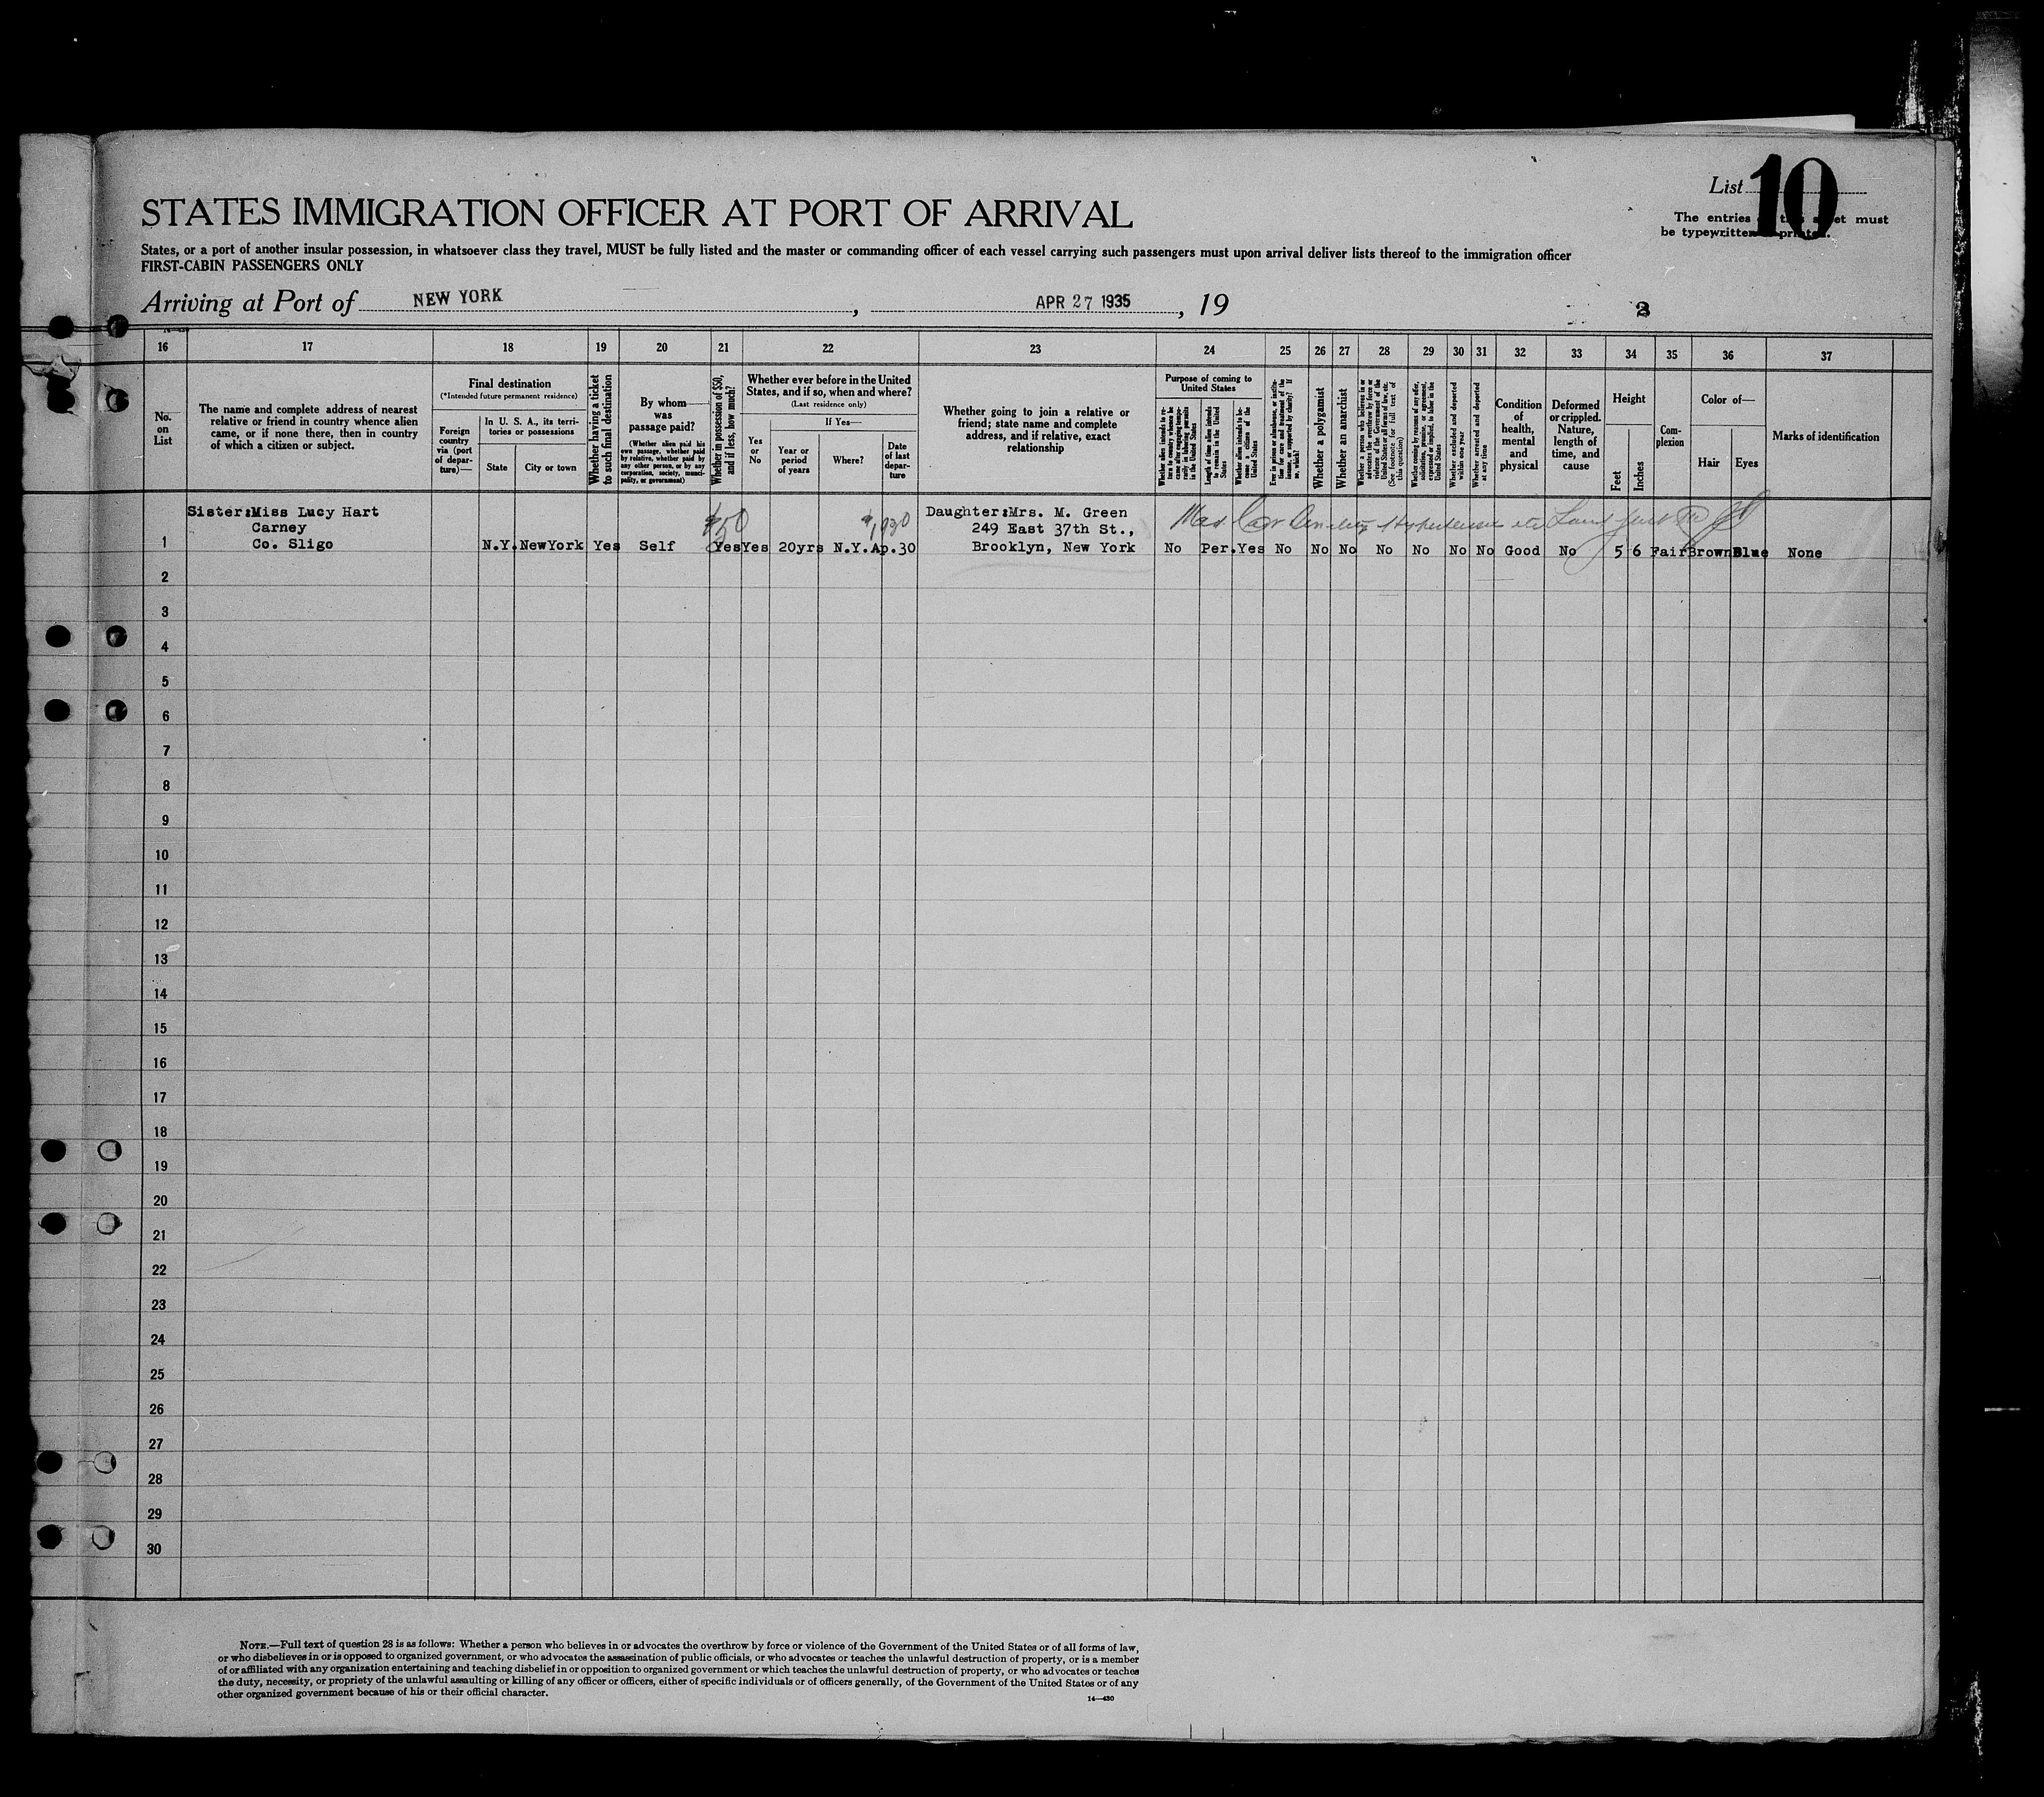 List 10
The entries must
be typewritten
STATES IMMIGRATION OFFICER AT PORT OF ARRIVAL
States, or a port of another insular possession, in whatsoever class they travel, MUST be fully listed and the master or commanding officer of each vessel carrying such passengers must upon arrival deliver lists thereof to the immigration officer
FIRST-CABIN PASSENGERS ONLY
Arriving at Port of NEW YORK, APR 27 1935, 19
16 17 18 19 20 21 22 23 24 25 26 27 28 29 30 31 32 33 34 35 36 37
No.
on
List
The name and complete address of nearest
relative or friend in country whence alien
came, or if none there, then in country
of which a citizen or subject.
Final destination
(*Intended future permanent residence)
Foreign
country
via (port
of depar-
ture)—
In U. S. A., its terri-
tories or possessions
State
City or town
Whether having a ticket
to such final destination
By whom
was
passage paid?
(Whether alien paid his
own passage, whether paid
by relative, whether paid by
any other person, or by any
corporation, society, munici-
pality, or government)
Whether in possession of $50,
and if less, how much?
Whether ever before in the United
States, and if so, when and where?
(Last residence only)
Yes
or
No
If Yes—
Year or
period
of years
Where?
Date
of last
depar-
ture
Whether going to join a relative or
friend; state name and complete
address, and if relative, exact
relationship
Purpose of coming to
United States
Whether alien intends to re-
turn to country whence he
came after engaging tempo-
rarily in laboring pursuits
in the United States
Length of time alien intends
to remain in the United
States
Whether alien intends to be-
come a citizen of the
United States
Ever in prison or almshouse, or institu-
tion for care and treatment of the
insane, or supported by charity? If
so, which?
Whether a polygamist
Whether an anarchist
Whether a person who believes in or
advocates the overthrow by force or
violence of the Government of the
United States or all forms of law, etc.
(See footnote for full text of
this question)
Whether coming by reason of any offer,
solicitation, promise, or agreement,
expressed or implied, to labor in the
United States
Whether excluded and deported
within one year
Whether arrested and deported
at any time
Condition
of
health,
mental
and
physical
Deformed
or crippled.
Nature,
length of
time, and
cause
Height
Feet
Inches
Com-
plexion
Color of—
Hair
Eyes
Marks of identification
Sister:Miss Lucy Hart
Carney
Co. Sligo
$50
Daughter:Mrs. M. Green
249 East 37th St.,
Brooklyn, New York
1 N.Y. NewYork Yes Self Yes Yes 20yrs N.Y. Ap.30 No Per. Yes No No No No No No No Good No 5 6 Fair Brown Blue None
2
3
4
5
6
7
8
9
10
11
12
13
14
15
16
17
18
19
20
21
22
23
24
25
26
27
28
29
30
NOTE.—Full text of question 28 is as follows: Whether a person who believes in or advocates the overthrow by force or violence of the Government of the United States or of all forms of law,
or who disbelieves in or is opposed to organized government, or who advocates the assassination of public officials, or who advocates or teaches the unlawful destruction of property, or is a member
of or affiliated with any organization entertaining and teaching disbelief in or opposition to organized government or which teaches the unlawful destruction of property, or who advocates or teaches
the duty, necessity, or propriety of the unlawful assaulting or killing of any officer or officers, either of specific individuals or of officers generally, of the Government of the United States or of any
other organized government because of his or their official character.
14—430